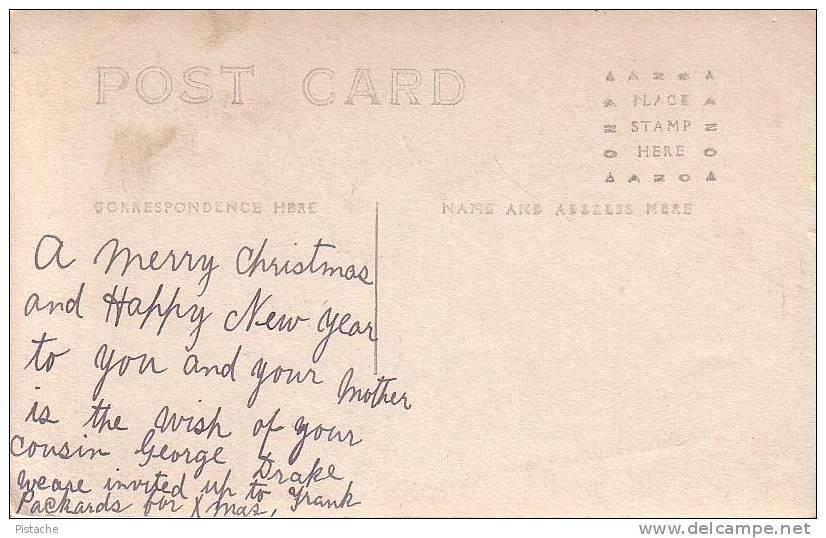 POST CARD
AZOA
PLACE
STAMP
HERE
AZOA
CORRESPONDENCE HERE
NAME AND ADDRESS HERE
A Merry Christmas
and Happy New Year
to you and your Mother
is the wish of your
cousin George Drake
we are invited up to Frank
Packards for Xmas,
Pistache
delcampe.net